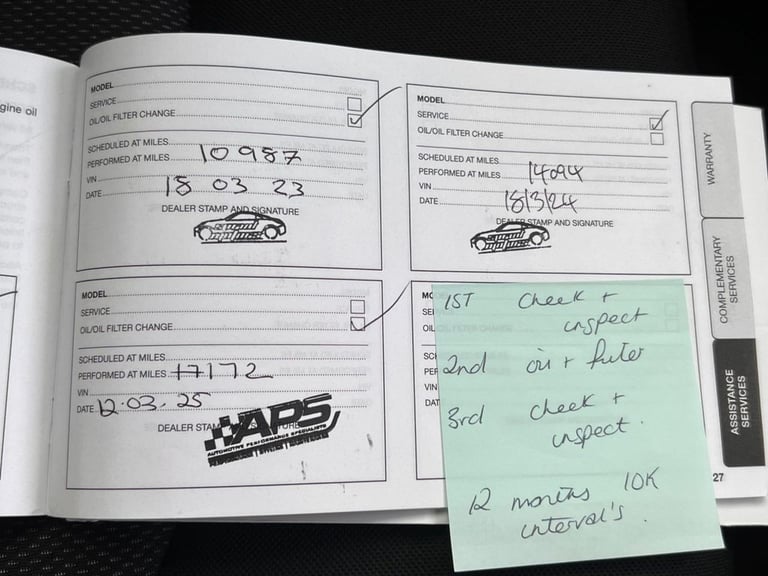 gine oil
MODEL
SERVICE
OIL/OIL FILTER CHANGE
SCHEDULED AT MILES
PERFORMED AT MILES 10987
VIN
DATE 18 03 23
DEALER STAMP AND SIGNATURE
MODEL
SERVICE
OIL/OIL FILTER CHANGE
SCHEDULED AT MILES
PERFORMED AT MILES 14094
VIN
DATE 18/3/24
DEALER STAMP AND SIGNATURE
MODEL
SERVICE
OIL/OIL FILTER CHANGE
SCHEDULED AT MILES
PERFORMED AT MILES 17172
VIN
DATE 12.03.25
DEALER STAM
TURE
APS
AUTOMOTIVE PERFORMANCE SPECIALISTS
MO
SE
OIL
SC
PER
VIN
DAT
1ST Check +
inspect
2nd oil + filter
3rd check +
inspect.
12 months 10K
interval's.
WARRANTY
COMPLEMENTARY
SERVICES
ASSISTANCE
SERVICES
27